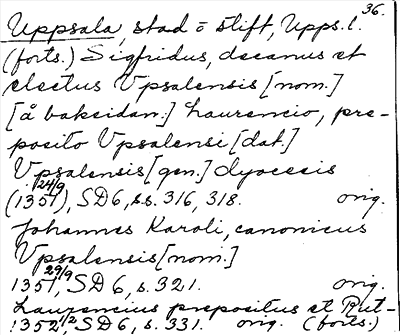 36.
Uppsala, stad o stift, Upps. l.
(forts.) Sigfridus, decanus et
electus Vpsalensis [nom.]
[å baksidan:] Laurencio, pre-
posito Vpsalensi [dat.]
Vpsalensis [gen.] dyocesis
(1351 24/9), SD 6, s.s. 316, 318. orig.
Johannes Karoli, canonicus
Vpsalensis [nom.]
1351 29/9, SD 6, s. 321. orig.
Laurencius prepositus et Rut-
1352 1/2 SD 6, s. 331. orig. (forts.)